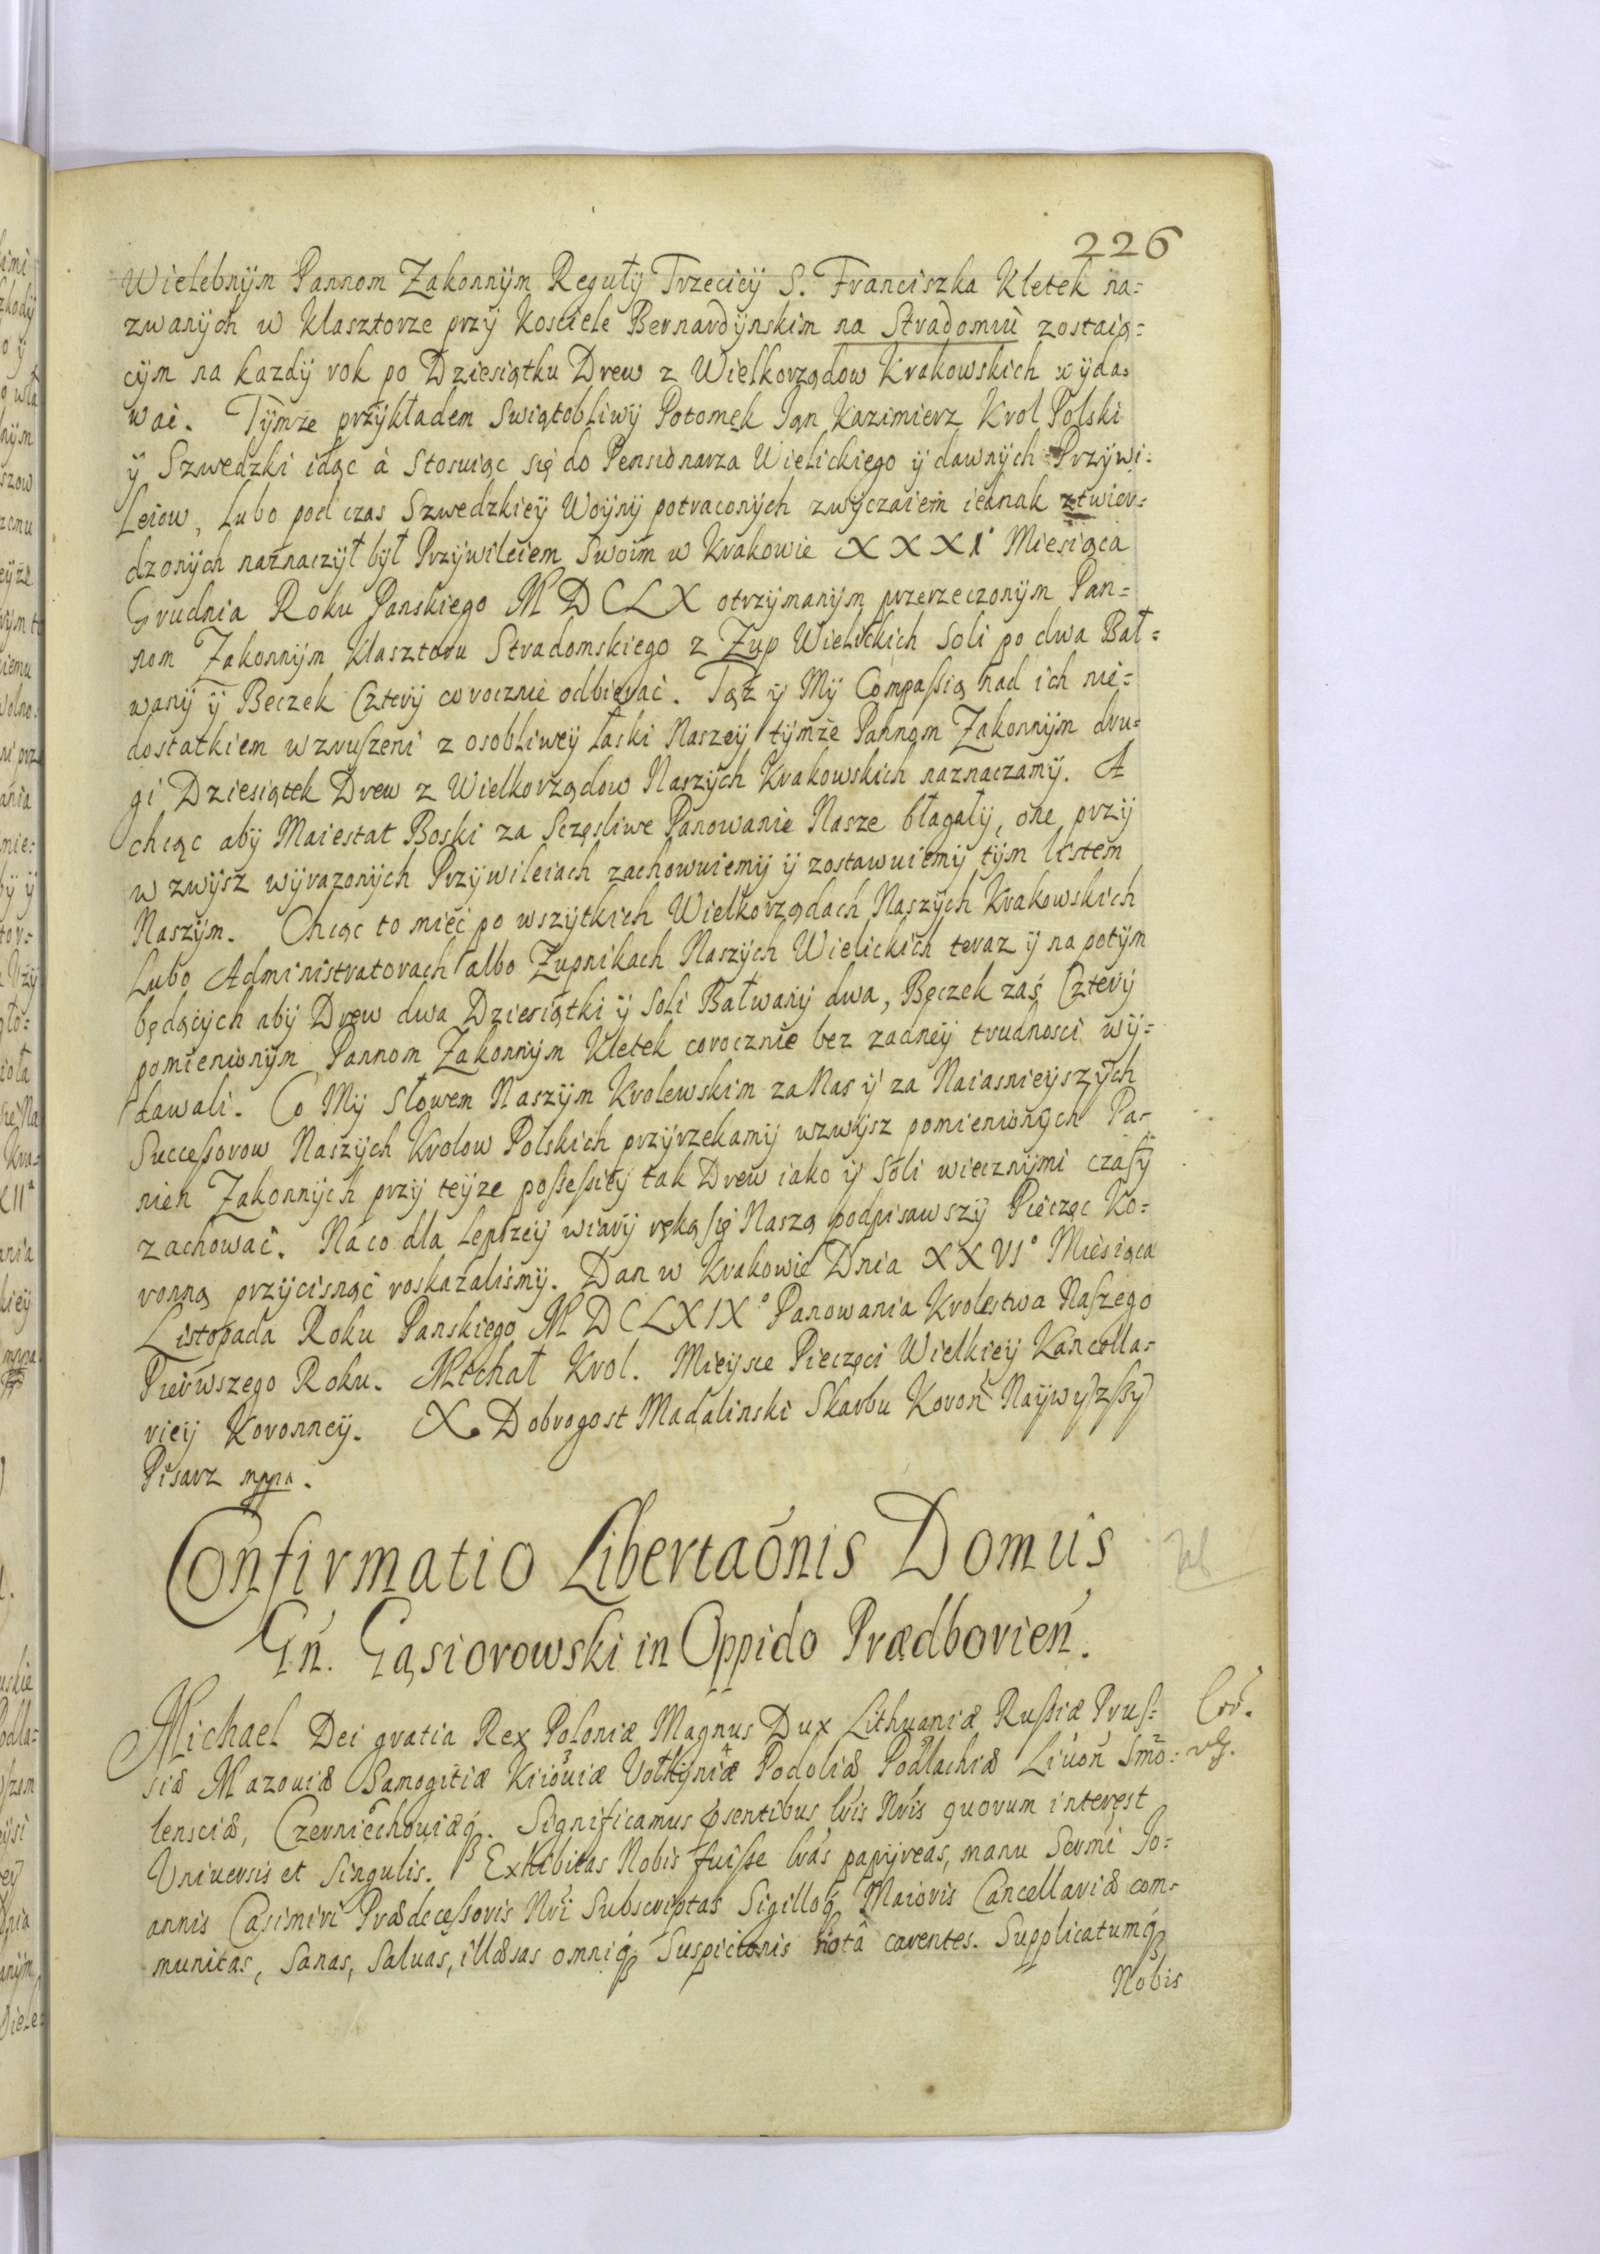 226
Wielebnÿm Pannom Zakonnÿm Regułÿ Trzeciey S. Franciszka Kletek na=
zwanÿch w Klasztorze przÿ Kosciele Bernardÿnskim na Stradomiu zostaią=
cÿm na kazdÿ rok po Dziesiątku Drew z Wielkorządow Krakowskich wÿda=
wać. Tÿmże przÿkładem Swiątobliwÿ Potomek Ian Kazimierz Krol Polski
ÿ Szwedzki idąc à Stosuiąc się do Pensionarza Wielickiego ÿ dawnÿch Przÿwi=
Leiow, Lubo pod czas Szwedzkieÿ Woÿnÿ potraconÿch zwÿczaiem iednak ztwier=
dzonÿch naznaczÿł bÿł Przÿwileiem Swoim w Krakowie XXXI° Miesiąca
Grudnia Roku Panskiego MDCLX otrzÿmanÿm przerzeczonÿm Pan=
nom Zakonnÿm Klasztoru Stradomskiego z Zup Wielickich Soli po dwa Bał=
wanÿ ÿ Beczek Czterÿ corocznie odbierać. Tąż ÿ Mÿ Compaſsią nad ich nie=
dostatkiem wzruſzeni z osobliweÿ łaski Naszeÿ tÿmże Pannom Zakonnÿm dru=
gi Dziesiątek Drew z Wielkorządow Naszÿch Krakowskich naznaczamÿ. A
chcąc abÿ Maiestat Boski za Sczęsliwe Panowanie Nasze błagałÿ, one przÿ
w zwÿsz wÿrazonÿch Przÿwileiach zachowuiemÿ ÿ zostawuiemÿ tÿm listem
Naszÿm. Chcąc to mieć po wszÿtkich Wielkorządach Naszÿch Krakowskich
Lubo Administratorach albo Zupnikach Naszÿch Wielickich teraz ÿ na potÿm
będącÿch abÿ Drew dwa Dziesiątki ÿ Soli Bałwanÿ dwa, Beczek zaś Czterÿ
pomienionÿm Pannom Zakonnÿm Kletek corocznie bez zadneÿ trudnosci wÿ=
dawali. Co Mÿ Słowem Naszÿm Krolewskim za Nas ÿ za Naiasnieÿszÿch
Succeſsorow Naszÿch Krolow Polskich przÿrzekamÿ wzwÿsz pomienionÿch Pa=
nien Zakonnÿch przÿ teÿze poſseſsiÿ tak Drew iako ÿ Soli wiecznÿmi czaſÿ
zachować. Na co dla lepſzeÿ wiarÿ ręką ſię Naszą podpisawszÿ Pieczęc Ko=
ronną przÿcisnąć roskazalismÿ. Dan w Krakowie Dnia XXVI° Miesiąca
Listopada Roku Panskiego MDCLXIX° Panowania Krolestwa Naſzego
Pierwszego Roku. Michał Krol. Mieÿsce Pieczęci Wielkieÿ Kancella=
rieÿ Koronneÿ. X. Dobrogost Madalinski Skarbu Koroñ Naÿwÿzſsÿ
Pisarz mppa.
Confirmatio Libertaónis Domus
Gñ. Gąsiorowski in Oppido Prædborień.
Michael Dei gratia Rex Poloniæ Magnus Dux Lithuaniæ Ruſsiæ Pruſ=
siæ Mazouiæ Samogitiæ Kiiouiæ Volhÿniæ Podoliæ Podlachiæ Liuoń Smo=
lensciæ, Czerniechouiæq́. Significamus pſentibus lrís Nrís quorum interest
Uniuersis et Singulis. Exhibitas Nobis fuiſse lrás papÿreas, manu Sermi Jo=
annis Casimiri Prædeceſsoris Nrí Subscriptas Sigilloq́ Maioris Cancellariæ com=
munitas, Sanas, Saluas, illæsas omniq́ Suspicionis notâ carentes. Supplicatumq́
Nobis